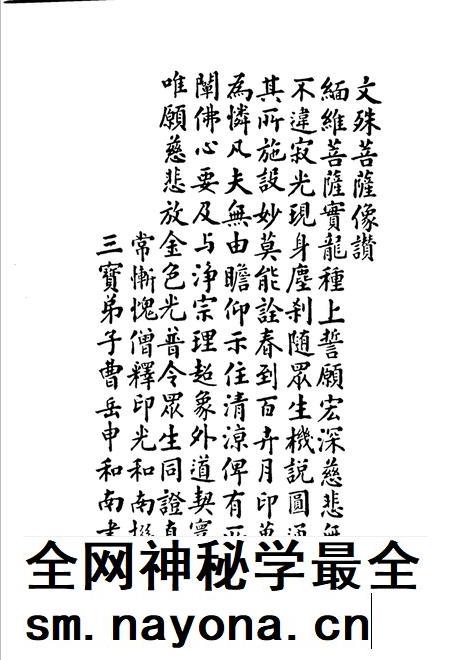 文殊菩薩像讚
緬維菩薩實龍種上誓願宏深慈悲無
不違寂光現身塵刹随眾生機說圓通
其所施設妙莫能詮春到百卉月印萬
為憐凡夫無由瞻仰示住清涼俾有所
闡佛心要及与淨宗理超象外道契寰
唯願慈悲放金色光普令眾生同證真
常慚愧僧釋印光和南撰
三寶弟子曹岳申和南書
全网神秘学最全
sm.nayona.cn